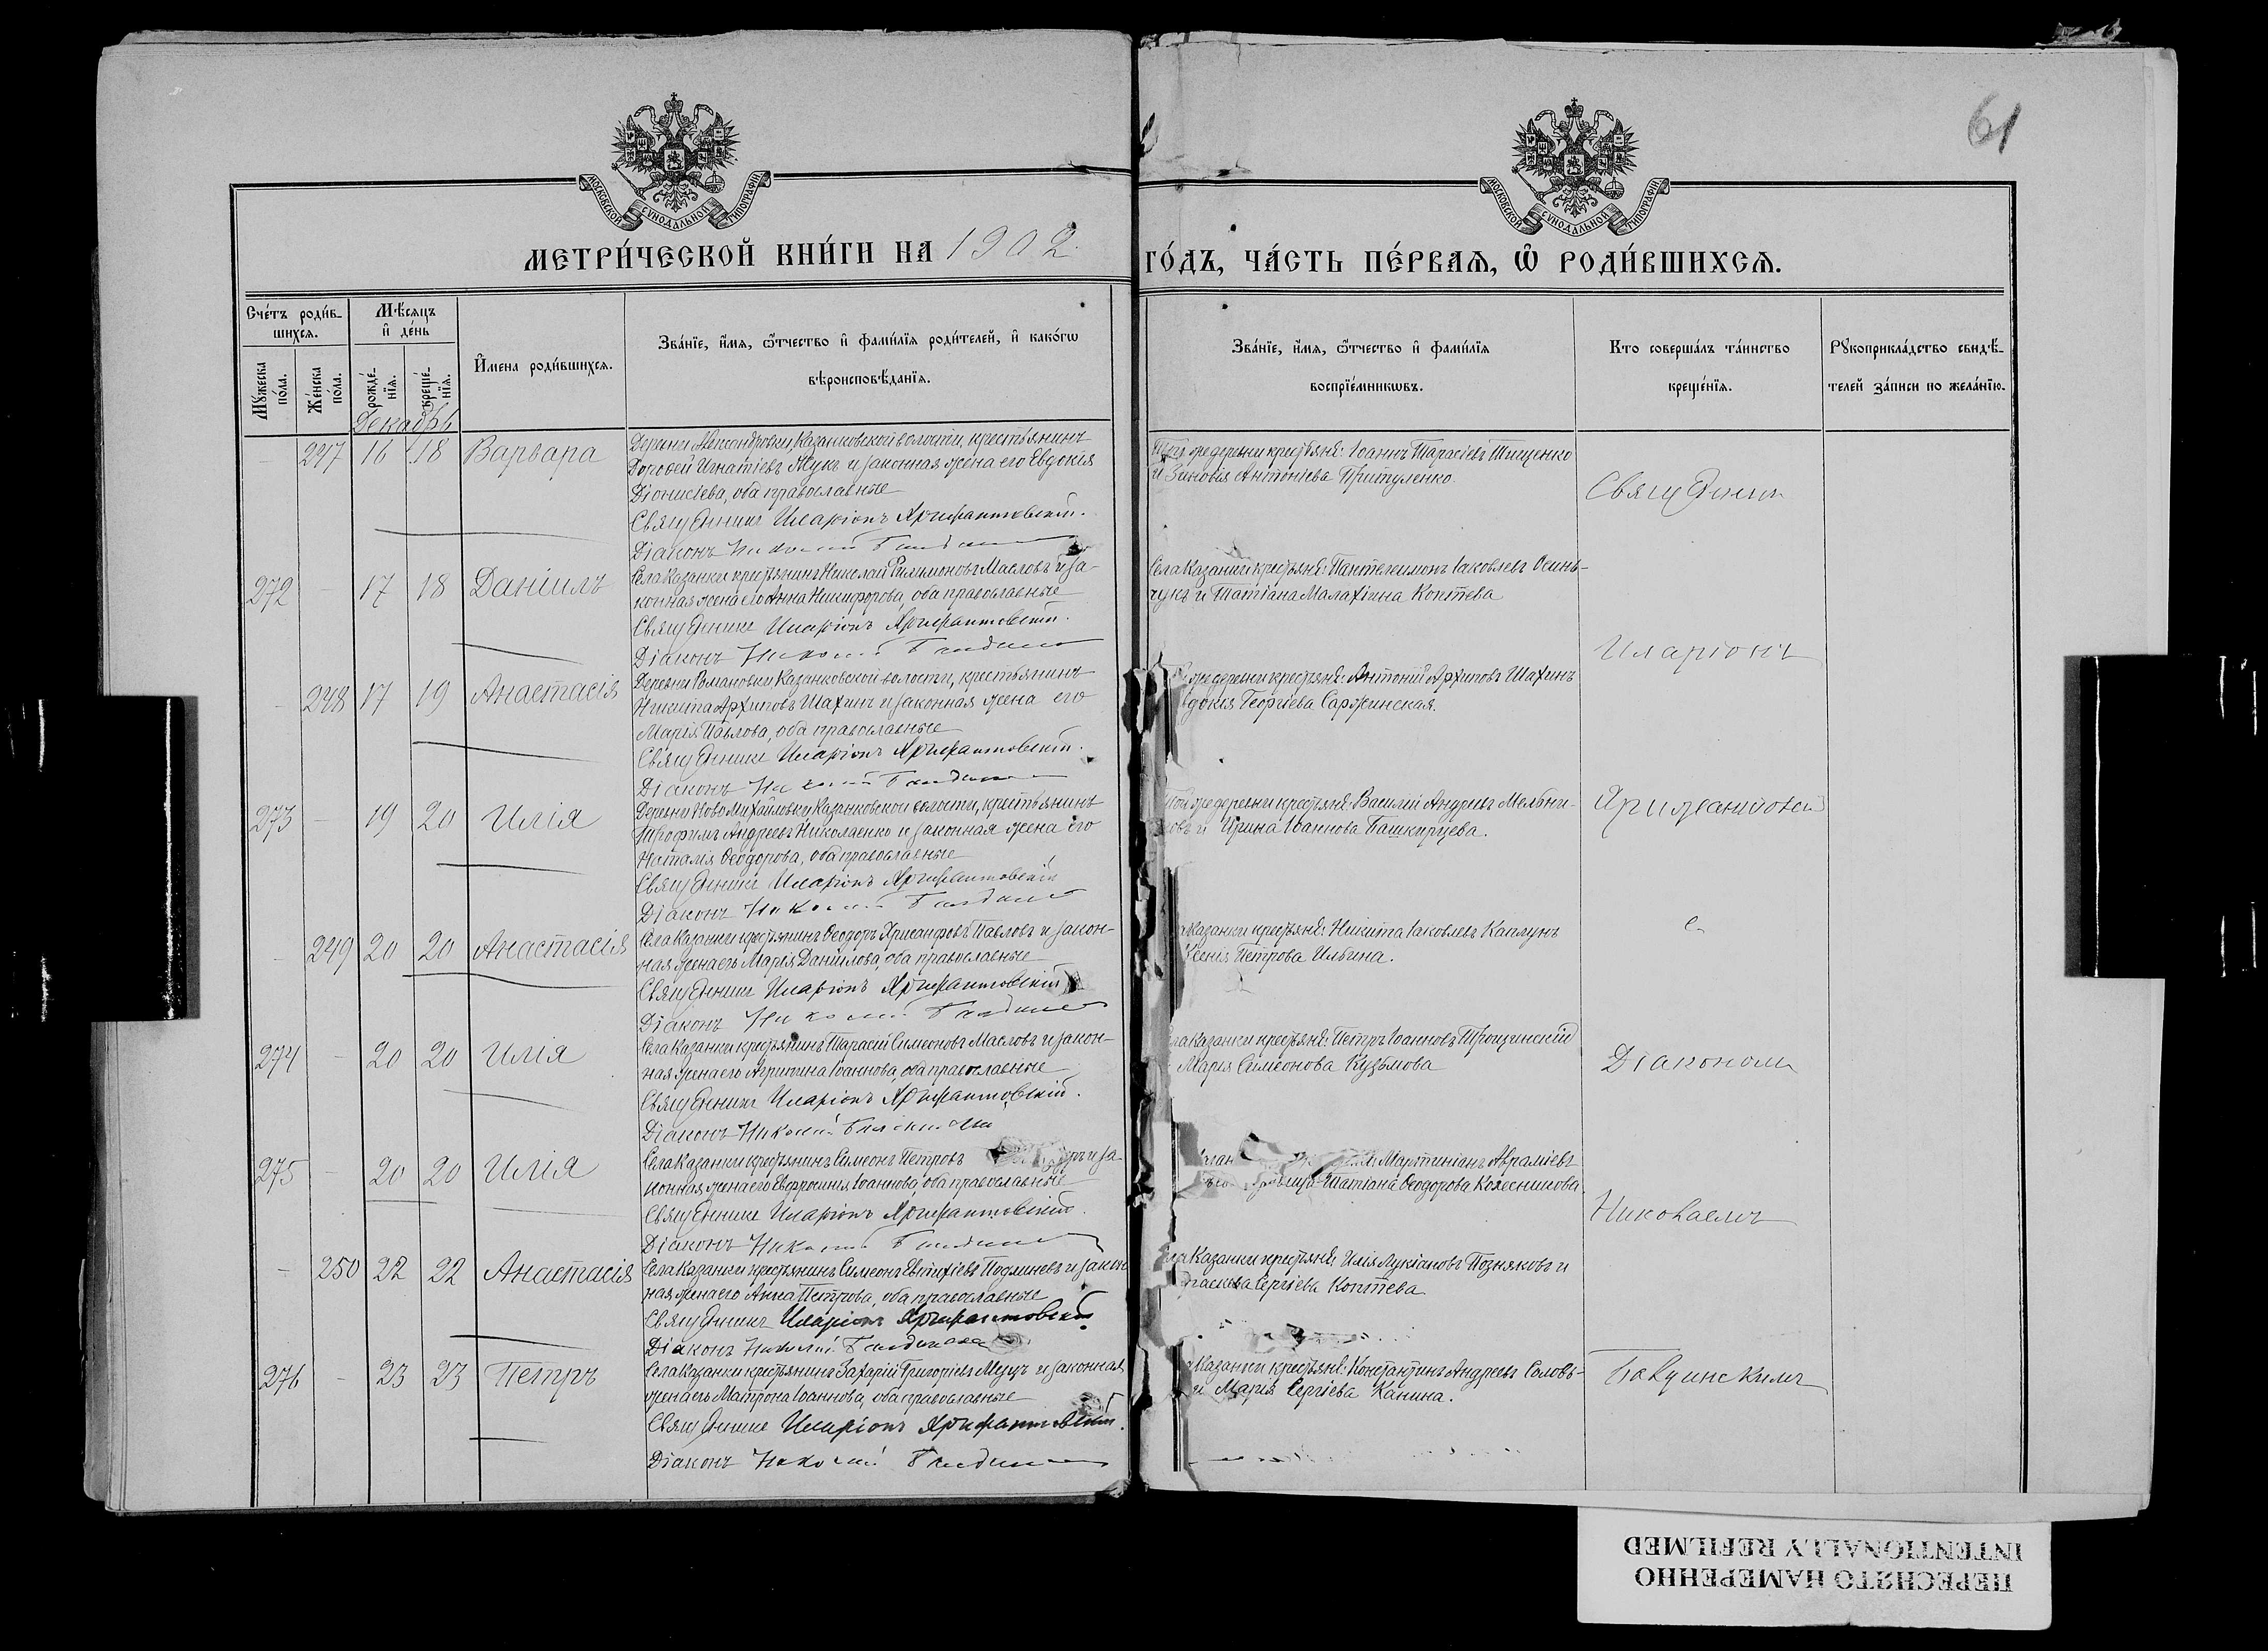 61
МОСКОВСКОЙ СУНОДАЛЬНОЙ ТИПОГРАФІИ
МОСКОВСКОЙ СУНОДАЛЬНОЙ ТИПОГРАФІИ
МЕТРИ́ЧЕСКОЙ КНИ́ГИ НА 1902
ГО́ДЪ, ЧА́СТЬ ПЕ́РВАѦ, Ѿ РОДИ́ВШИХСѦ.
Сче́тъ роди́в-
шихсѧ.
Мѣ́сѧцъ
и҆ де́нь
Мꙋ́жеска
по́ла.
Же́нска
по́ла.
рожде́-
нїѧ.
креще́-
нїѧ.
И҆мена роди́вшихсѧ.
Зва́нїе, и҆́мѧ, ѻ҆́тчество и҆ фами́лїѧ роди́телей, и҆ како́гѡ
вѣроисповѣ́данїѧ.
Зва́нїе, и҆́мѧ, ѻ҆́тчество и҆ фами́лїѧ
воспрїе́мникѡвъ.
Кто соверша́лъ та́инство
креще́нїѧ.
Рꙋкоприкла́дство свидѣ́-
телей за́писи по жела́нїю.
Декабрь
- 247 16 18 Варвара
Деревни Александровки, Казанковской волости, крестьянинъ
Дорофей Игнатіевъ Жукъ и законная жена его Евдокія
Діонисіева, оба православные
Священникъ Иларіонъ Арифантовскій.
Діаконъ Николай
Той же деревни крестьяне: Іоаннъ Тарасіевъ Тищенко
и Зиновія Антоніева Притуленко.
272 - 17 18 Даніилъ
Села Казанки крестьянинъ Николай Филимоновъ Масловъ и за-
конная жена его Анна Никифорова, оба православные
Священникъ Иларіонъ Арифантовскій.
Діаконъ Николай
Села Казанки крестьяне: Пантелеимонъ Іаковлевъ Осинь-
чукъ и Татіана Малахіина Коптева
- 248 17 19 Анастасія
Деревни Романовки, Казанковской волости, крестьянинъ
Никита Архиповъ Шахинъ и законная жена его
Марія Павлова, оба православные
Священникъ Иларіонъ Арифантовскій.
Діаконъ Николай
же деревни крестьяне: Антоній Архиповъ Шахинъ
Евдокія Георгіева Саржинская.
273 - 19 20 Илія
Деревни Ново Михайловки Казанковской волости, крестьянинъ
Трофимъ Андреевъ Николаенко и законная жена его
Наталія Ѳеодорова, оба православные
Священникъ Иларіонъ Арифантовскій
Діаконъ Николай
Той же деревни крестьяне: Василій Андреевъ Мельни-
ковъ и Ирина Іоаннова Башкирцева.
- 249 20 20 Анастасія
Села Казанки крестьянинъ Ѳеодоръ Хрисанфовъ Павловъ и закон-
ная жена его Марія Даниілова, оба православные
Священникъ Иларіонъ Арифантовскій
Діаконъ Николай
Казанки крестьяне: Никита Іаковлевъ Каплунъ
Ксенія Петрова Ильина.
274 - 20 20 Илія
Села Казанки крестьянинъ Тарасій Симеоновъ Масловъ и закон-
ная жена его Агрипина Іоаннова, оба православные
Священникъ Иларіонъ Арифантовскій.
Діаконъ Николай
Села Казанки крестьяне: Петръ Іоанновъ Трощинскій
Марія Симеонова Кузьмова
275 - 20 20 Илія
Села Казанки крестьянинъ Симеонъ Петровъ и за
конная жена его Евфросинія Іоаннова, оба православные
Священникъ Иларіонъ Арифантовскій.
Діаконъ Николай
Мартиніанъ Авраміевъ
Татіана Ѳеодорова Колесникова.
- 250 22 22 Анастасія
Села Казанки крестьянинъ Симеонъ Евтихіевъ Подлиневъ и закон
ная жена его Анна Петрова, оба православные
Священникъ Иларіонъ Арифантовскій
Діаконъ Николай
Села Казанки крестьяне: Илія Лукіановъ Позняковъ и
Параскева Сергіева Коптева
276 - 23 23 Петръ
Села Казанки крестьянинъ Захарій Григоріевъ Мущъ и законная
жена его Матрона Іоаннова, оба православные
Священникъ Иларіонъ Арифантовскій.
Діаконъ Николай
Казанки крестьяне: Константинъ Андреевъ Соловь-
и Марія Сергіева Канина.
Священникъ
Иларіонъ
Арифантовскій
с
Діакономъ
Николаемъ
ПЕРЕСНЯТО НАМЕРЕННО
INTENTIONALLY REFILMED